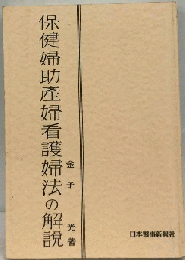 保健婦助産婦看護婦法の解説
金子光著
日本醫事新報社